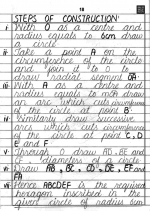 18
STEPS OF CONSTRUCTION
i- With O as a centre and
radius equals to 6cm draw
a circle
ii- Take a point A on the
circumference of the circle
and join it to O to
draw radial segment OA.
iii- With A as a centre and
radius equals to mOA draw
an arc which cuts circumference
of the circle at point B.
iv- Similarly draw successive
arcs which cuts circumference
of the circle at point C, D,
E and F
v- Through O draw AD, BE and
CF diameters of a circle
vi- Draw AB, BC, CD, DE, EF and
FA
vii- Hence ABCDEF is the required
hexagon inscribed in the
given circle of radius 6cm